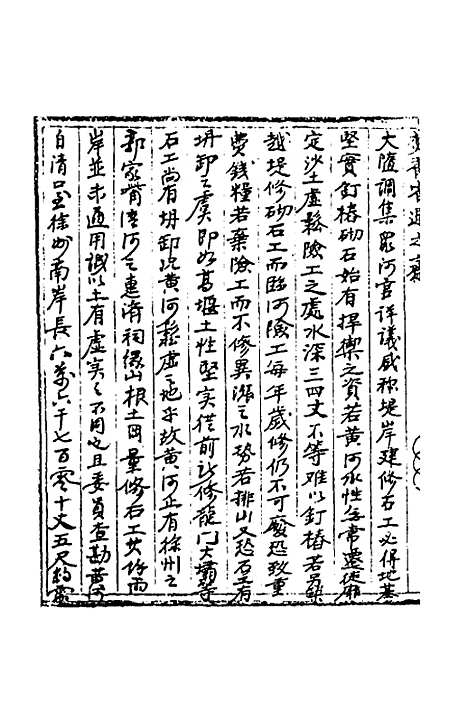 大隄調集眾河官詳議咸稱堤岸建修石工必得地基
堅實釘樁砌石始有捍禦之資若黃河水性無常遷徙靡
定沙土虛鬆險工之處水深三四丈不等難以釘樁若另築
越堤修砌石工而臨河險工每年歲修仍不可廢恐致重
費錢糧若棄險工而不修異漲之水勢若排山又恐石工有
坍卸之虞即如高堰土性堅實從前所修龍門大壩等
石工尚有坍卸況黃河鬆虛之地乎故黃河止有徐州之
郭家嘴清河之惠濟祠緣山根土岡量修石工其餘兩
岸並未通用誠以土有虛實之不同也且委員查勘黃河
自清口至徐州南岸長六萬六千七百零十丈五尺約需